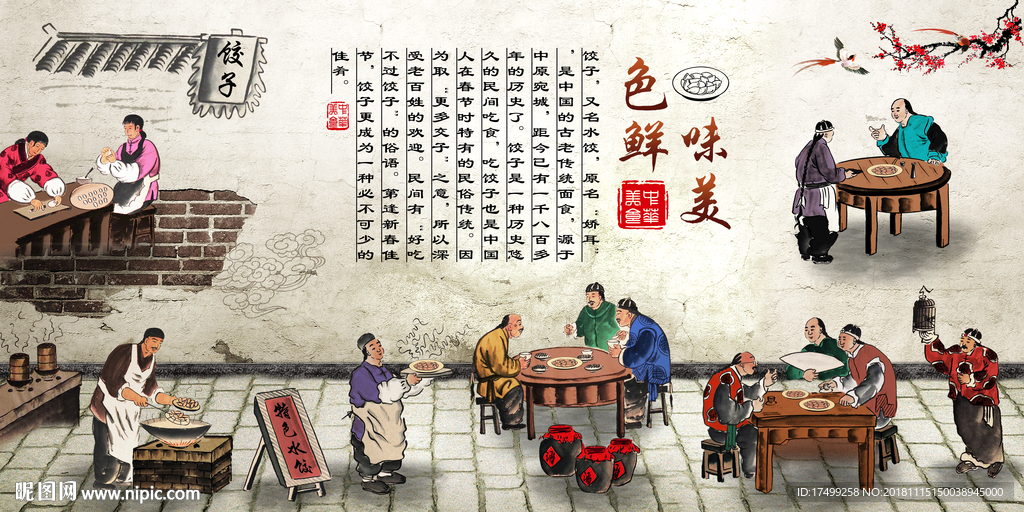 饺子
饺子，又名水饺，原名“娇耳”
，是中国的古老传统面食，源于
中原宛城，距今已有一千八百多
年的历史了。饺子是一种历史悠
久的民间吃食，吃饺子也是中国
人在春节时特有的民俗传统。因
为取“更多交子”之意，所以深
受老百姓的欢迎。民间有“好吃
不过饺子”的俗语。第逢新春佳
节，饺子更成为一种必不可少的
佳肴。
中华美食
色鲜
味美
中华美食
特色水饺
酒
酒
酒
昵图网 www.nipic.com
ID:17499258 NO:20181115150038945000